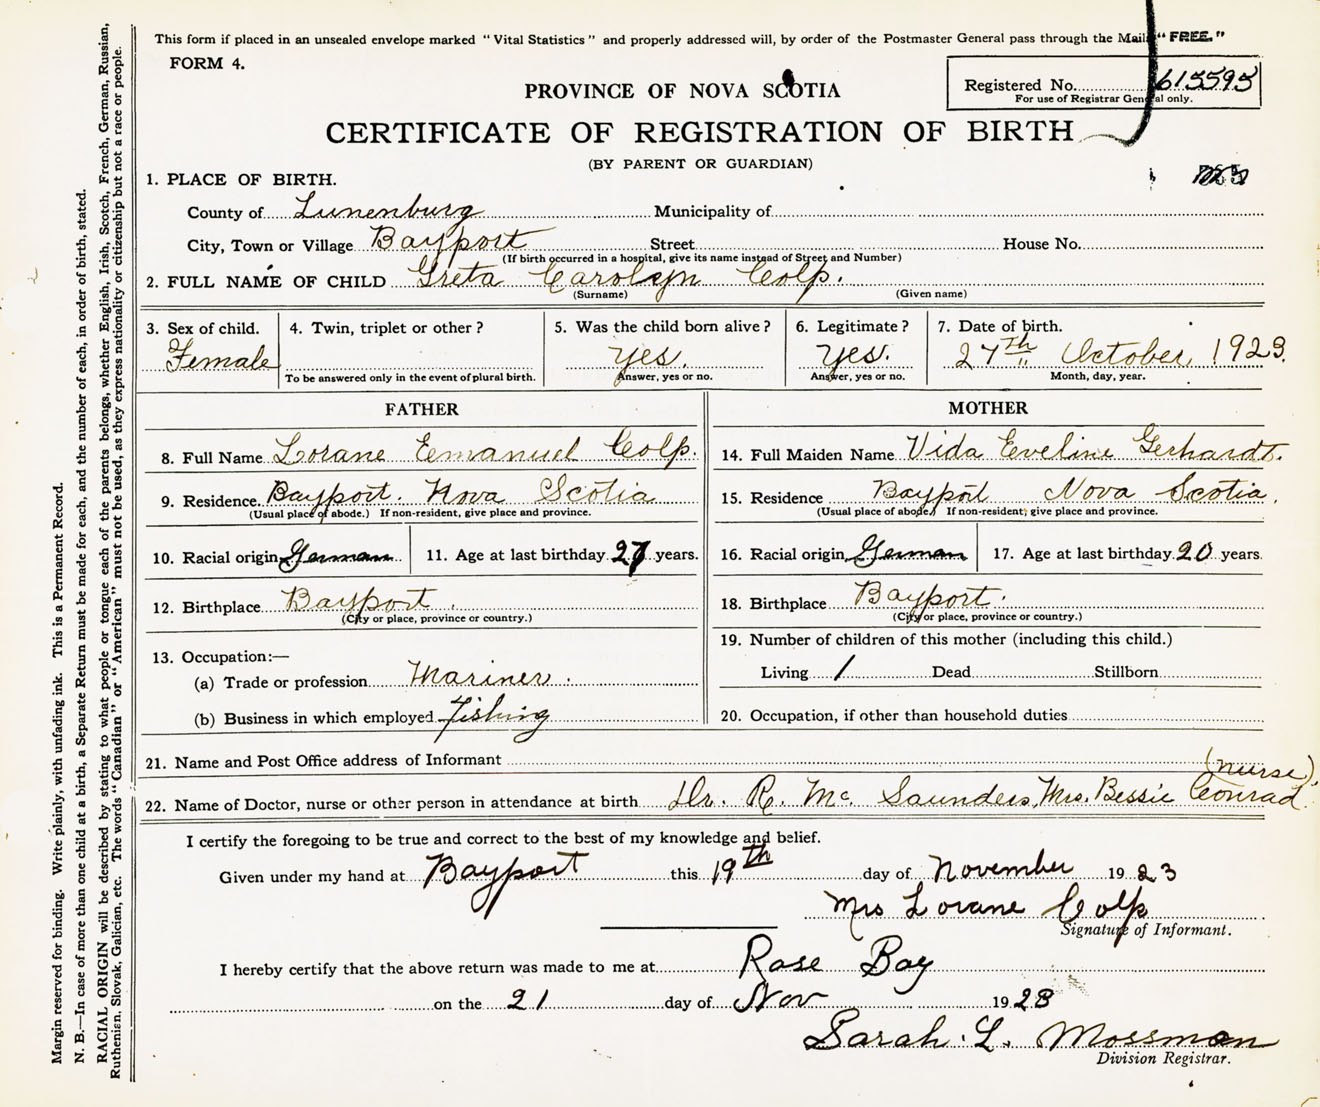 This form if placed in an unsealed envelope marked "Vital Statistics" and properly addressed will, by order of the Postmaster General pass through the Mails "FREE."
FORM 4.
PROVINCE OF NOVA SCOTIA
Registered No. 615595
For use of Registrar General only.
CERTIFICATE OF REGISTRATION OF BIRTH
(BY PARENT OR GUARDIAN)
1. PLACE OF BIRTH.
County of Lunenburg Municipality of
City, Town or Village Bayport Street House No.
(If birth occurred in a hospital, give its name instead of Street and Number)
2. FULL NAME OF CHILD Greta Carolyn Colp.
(Surname) (Given name)
3. Sex of child. 4. Twin, triplet or other? 5. Was the child born alive? 6. Legitimate? 7. Date of birth.
Female yes. Yes. 27th October, 1923.
To be answered only in the event of plural birth. Answer, yes or no. Answer, yes or no. Month, day, year.
FATHER MOTHER
8. Full Name Lorane Emanuel Colp. 14. Full Maiden Name Vida Eveline Gerhardt.
9. Residence. Bayport. Nova Scotia 15. Residence Bayport Nova Scotia.
(Usual place of abode.) If non-resident, give place and province. (Usual place of abode.) If non-resident, give place and province.
10. Racial origin German 11. Age at last birthday 27 years. 16. Racial origin German 17. Age at last birthday 20 years.
12. Birthplace Bayport. 18. Birthplace Bayport.
(City or place, province or country.) (City or place, province or country.)
13. Occupation:— 19. Number of children of this mother (including this child.)
(a) Trade or profession Mariner. Living 1 Dead Stillborn
(b) Business in which employed Fishing 20. Occupation, if other than household duties
21. Name and Post Office address of Informant
(nurse).
22. Name of Doctor, nurse or other person in attendance at birth Dr. R. Mc Saunders, Mrs. Bessie Conrad.
I certify the foregoing to be true and correct to the best of my knowledge and belief.
Given under my hand at Bayport this 19th day of November 1923
Mrs Lorane Colp
Signature of Informant.
I hereby certify that the above return was made to me at Rose Bay
on the 21 day of Nov 1923
Sarah L. Mossman
Division Registrar.
Margin reserved for binding. Write plainly, with unfading ink. This is a Permanent Record.
N. B.—In case of more than one child at a birth, a Separate Return must be made for each, and the number of each, in order of birth, stated.
RACIAL ORIGIN will be described by stating to what people or tongue each of the parents belongs, whether English, Irish, Scotch, French, German, Russian,
Ruthenian, Slovak, Galician, etc. The words "Canadian" or "American" must not be used, as they express nationality or citizenship but not a race or people.